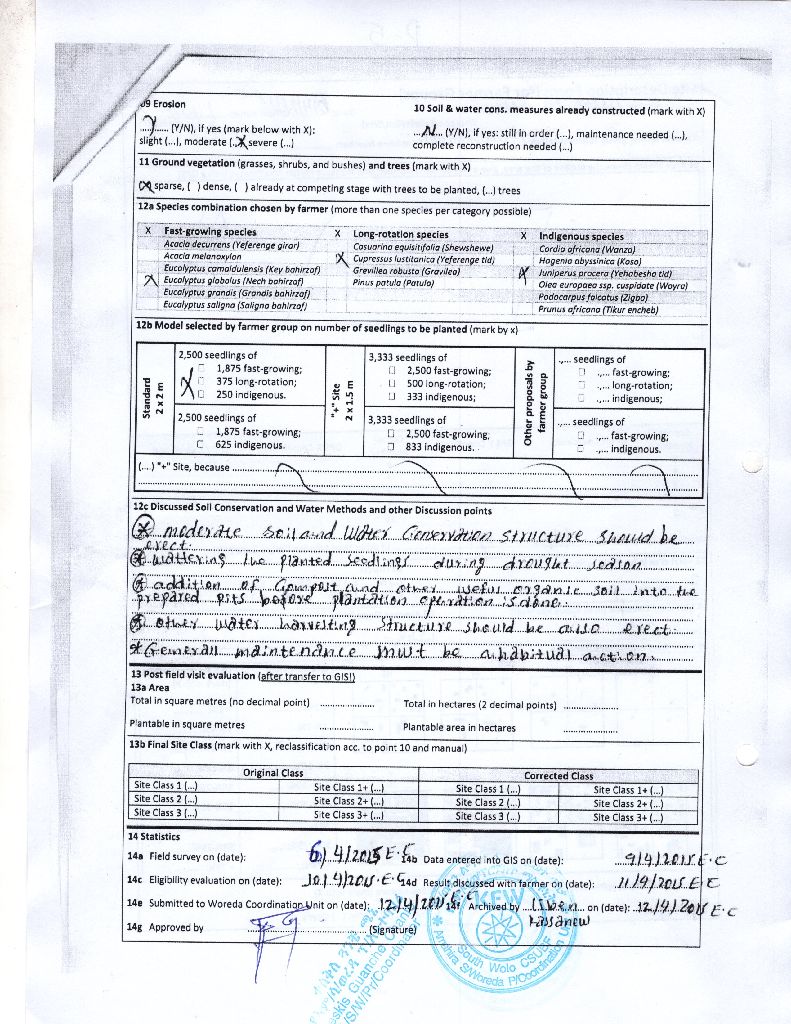 09 Erosion
10 Soil & water cons. measures already constructed (mark with X)
..Y.... (Y/N), if yes (mark below with X):
slight (...), moderate (..X severe (...)
...N... (Y/N), if yes: still in order (...), maintenance needed (...),
complete reconstruction needed (...)
11 Ground vegetation (grasses, shrubs, and bushes) and trees (mark with X)
(X) sparse, ( ) dense, ( ) already at competing stage with trees to be planted, (...) trees
12a Species combination chosen by farmer (more than one species per category possible)
X Fast-growing species
Acacia decurrens (Yeferenge girar)
Acacia melanoxylon
Eucalyptus camaldulensis (Key bahirzaf)
X Eucalyptus globolus (Nech bahirzaf)
Eucalyptus grandis (Grandis bahirzaf)
Eucalyptus saligna (Saligna bahirzaf)
X Long-rotation species
Casuarina equisitifolia (Shewshewe)
X Cupressus lustitanica (Yeferenge tid)
Grevillea robusta (Gravilea)
Pinus patula (Patula)
X Indigenous species
Cordia africana (Wanza)
Hagenia abyssinica (Koso)
X Juniperus procera (Yehabesha tid)
Olea europaea ssp. cuspidate (Woyra)
Podocarpus falcatus (Zigba)
Prunus africana (Tikur encheb)
12b Model selected by farmer group on number of seedlings to be planted (mark by x)
Standard
2 x 2 m
2,500 seedlings of
1,875 fast-growing;
X 375 long-rotation;
250 indigenous.
2,500 seedlings of
1,875 fast-growing;
625 indigenous.
"+" Site
2 x 1.5 m
3,333 seedlings of
2,500 fast-growing;
500 long-rotation;
333 indigenous;
3,333 seedlings of
2,500 fast-growing,
833 indigenous.
Other proposals by
farmer group
.,... seedlings of
.,... fast-growing;
.,... long-rotation;
.,... indigenous;
.,... seedlings of
.,... fast-growing;
.,... indigenous.
(...) "+" Site, because
12c Discussed Soil Conservation and Water Methods and other Discussion points
* moderate soil and Water Conservation structure should be
erect.
* wattering the planted seedlings during drought season
* addition of Compost and other usefus organic soil into the
prepared pits before plantation operation is done.
* other water harvesting structure should be also erect.
* Generall maintenance must be a habitual action.
13 Post field visit evaluation (after transfer to GIS!)
13a Area
Total in square metres (no decimal point) ..................
Total in hectares (2 decimal points) ..................
Plantable in square metres ..................
Plantable area in hectares ..................
13b Final Site Class (mark with X, reclassification acc. to point 10 and manual)
Original Class
Corrected Class
Site Class 1 (...) Site Class 1+ (...) Site Class 1 (...) Site Class 1+ (...)
Site Class 2 (...) Site Class 2+ (...) Site Class 2 (...) Site Class 2+ (...)
Site Class 3 (...) Site Class 3+ (...) Site Class 3 (...) Site Class 3+ (...)
14 Statistics
14a Field survey on (date): 6/4/2015 E.C 14b Data entered into GIS on (date): 9/4/2015 E.C
14c Eligibility evaluation on (date): 10/4/2015 E.C 14d Result discussed with farmer on (date): 11/9/2015 E.C
14e Submitted to Woreda Coordination Unit on (date): 12/4/2015 E.C 14f Archived by ... on (date): 12/4/2015 E.C
Kassanew
14g Approved by .................. (Signature)
KFW
South Wolo CSU